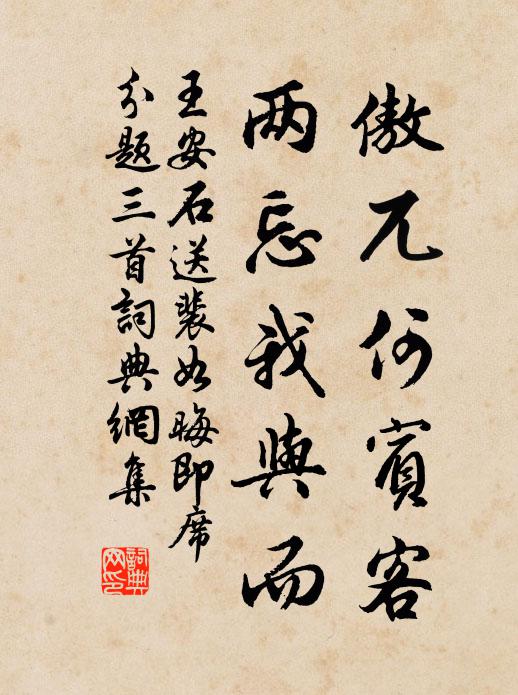 傲兀何賓客
两忘我與而
王安石送裴如晦即席
分题三首詞典網集
詞典网印